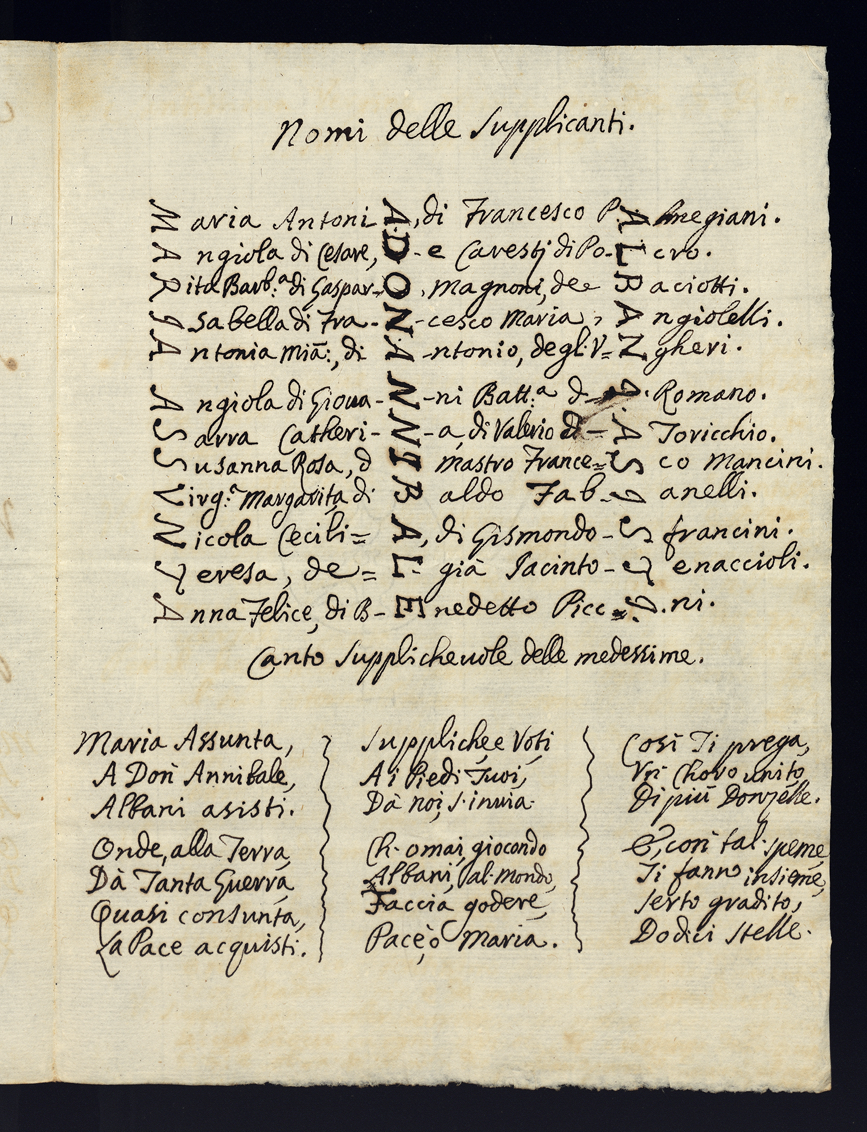 Nomi delle Supplicanti.
Maria Antoni A, di Francesco P. Almegiani.
Angiola di Cesare, D - e Carestj di Po- L cro.
Rita Barb.ª di Gaspar- O, Magnoni, de B aciotti.
Isabella di Fra - N - cesco Maria A ngiolelli.
Antonia Mia:, di A -ntonio, degl' V= N gheri.
Angiola di Gioua- N -ni Batt.ª d Romano.
Sarra Catheri- N -a, di Valerio di A Toricchio.
Susanna Rosa, d I mastro France= S co Mancini.
Virg.ª Margarita di B aldo Fab anelli.
Nicola Cecili= A, di Gismondo - S francini.
Teresa, de= L - gia Jacinto - T enaccioli.
Anna Felice, di B- E nedetto Picc .ni.
Canto Supplicheuole delle medessime.
Maria Assunta,
A Don Annibale,
Albani asisti.
Onde, alla Terra
Dà Tanta Guerra
Quasi consunta,
La Pace acquisti.
Suppliche e Voti
Ai Piedi Tuoi,
Dà noi, s'inuia.
Ch'omai giocondo
Albani, al mondo,
Faccia godere,
Pace, ò Maria.
Così Ti prega,
Vn Choro unito
Di più Donzelle.
E, con tal speme
Ti fanno insieme,
Serto gradito,
Dodici Stelle.